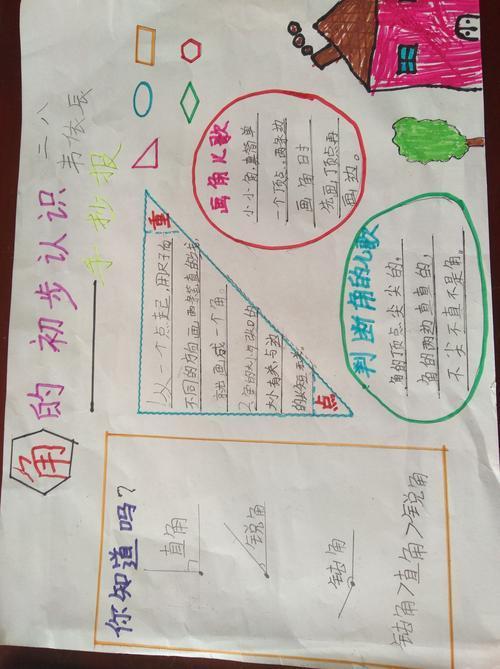 角的初步认识
二八
韦依辰
手抄报
画角儿歌
小小角,真简单
一个顶点,两条边
画角时
先画顶点再
画边。
判断角的儿歌
角的顶点尖尖的。
角的两边直直的,
不尖不直不是角。
重
点
1、从一个点起,用尺子向
不同的方向画两条笔直的线,
就画成一个角。
2、角的大小与张口的
大小有关,与边
的长短无关。
你知道吗?
直角
锐角
钝角
钝角>直角>锐角